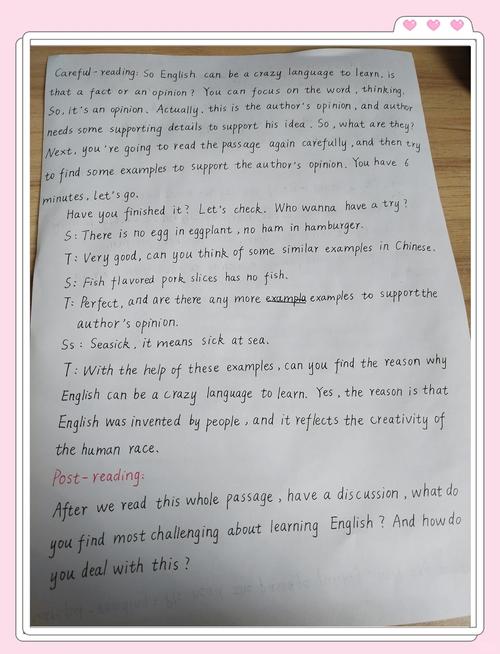 Careful-reading: So English can be a crazy language to learn, is
that a fact or an opinion? You can focus on the word, thinking.
So, it's an opinion. Actually, this is the author's opinion, and author
needs some supporting details to support his idea. So, what are they?
Next, you're going to read the passage again carefully, and then try
to find some examples to support the author's opinion. You have 6
minutes, let's go.
Have you finished it? Let's check. Who wanna have a try?
S: There is no egg in eggplant, no ham in hamburger.
T: Very good, can you think of some similar examples in Chinese.
S: Fish flavored pork slices has no fish.
T: Perfect, and are there any more exampla examples to support the
author's opinion.
Ss: Seasick, it means sick at sea.
T: With the help of these examples, can you find the reason why
English can be a crazy language to learn. Yes, the reason is that
English was invented by people, and it reflects the creativity of
the human race.
Post-reading:
After we read this whole passage, have a discussion, what do
you find most challenging about learning English? And how do
you deal with this?